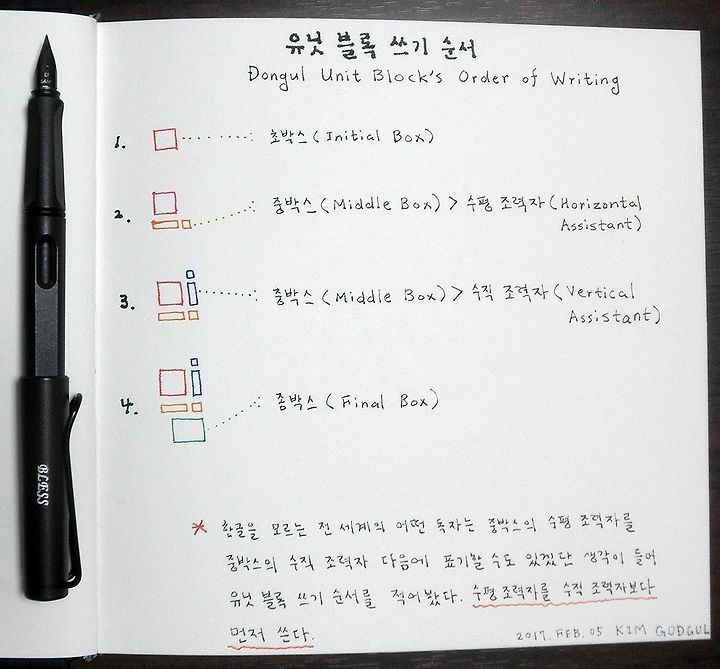 유닛 블록 쓰기 순서
Dongul Unit Block's Order of Writing
1. 초박스 (Initial Box)
2. 중박스 (Middle Box) > 수평 조력자 (Horizontal
Assistant)
3. 중박스 (Middle Box) > 수직 조력자 (Vertical
Assistant)
4. 종박스 (Final Box)
* 한글을 모르는 전 세계의 어떤 독자는 중박스의 수평 조력자를
중박스의 수직 조력자 다음에 표기할 수도 있겠단 생각이 들어
유닛 블록 쓰기 순서를 적어봤다. 수평 조력자를 수직 조력자보다
먼저 쓴다.
2017. FEB. 05 KIM GODGUL
BLESS